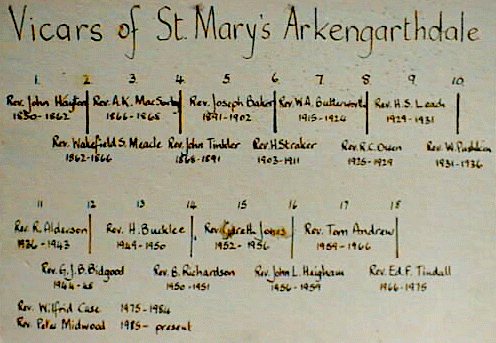 Vicars of St. Mary's Arkengarthdale
1. 2 3. 4. 5. 6 7. 8 9. 10.
Rev. John Hayton Rev. A.K. MacSorley Rev. Joseph Baker Rev. W.A. Butterworth Rev. H.S. Leach
1830-1862 1866-1868 1891-1902 1915-1924 1929-1931
Rev. Wakefield S. Meacle Rev. John Tinkler Rev. H. Straker Rev. R.C. Owen Rev. W. Pushkin
1862-1866 1868-1891 1903-1911 1925-1929 1931-1936
11 12 13 14 15 16 17 18
Rev. R. Alderson Rev. H. Bucklee Rev. Gareth Jones Rev. Tom Andrew
1936-1943 1949-1950 1952-1956 1959-1966
Rev. G.J.B. Bidgood Rev. B. Richardson Rev. John L. Heigham Rev. Ed. F. Tindall
1944-48 1950-1951 1956-1959 1966-1975
Rev. Wilfrid Case 1975-1984
Rev. Peter Midwood 1985- present